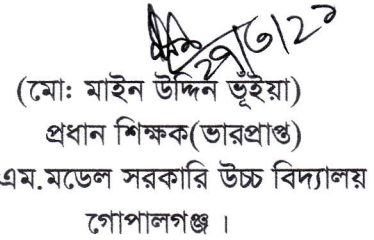 (মো: মাইন উদ্দিন ভূঁইয়া)
প্রধান শিক্ষক(ভারপ্রাপ্ত)
এম.মডেল সরকারি উচ্চ বিদ্যালয়
গোপালগঞ্জ ।